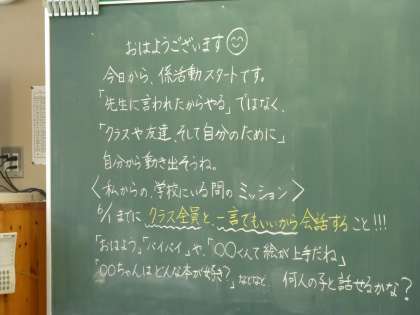 おはようございます
今日から、係活動スタートです。
「先生に言われたからやる」ではなく、
「クラスや友達、そして自分のために」
自分から動き出そうね。
〈私からの、学校にいる間のミッション〉
6/1までにクラス全員と、一言でもいいから会話すること!!!
「おはよう。」「バイバイ」や、「○○くんて絵が上手だね」
「○○ちゃんはどんな本が好き?」などなど、何人の子と話せるかな?